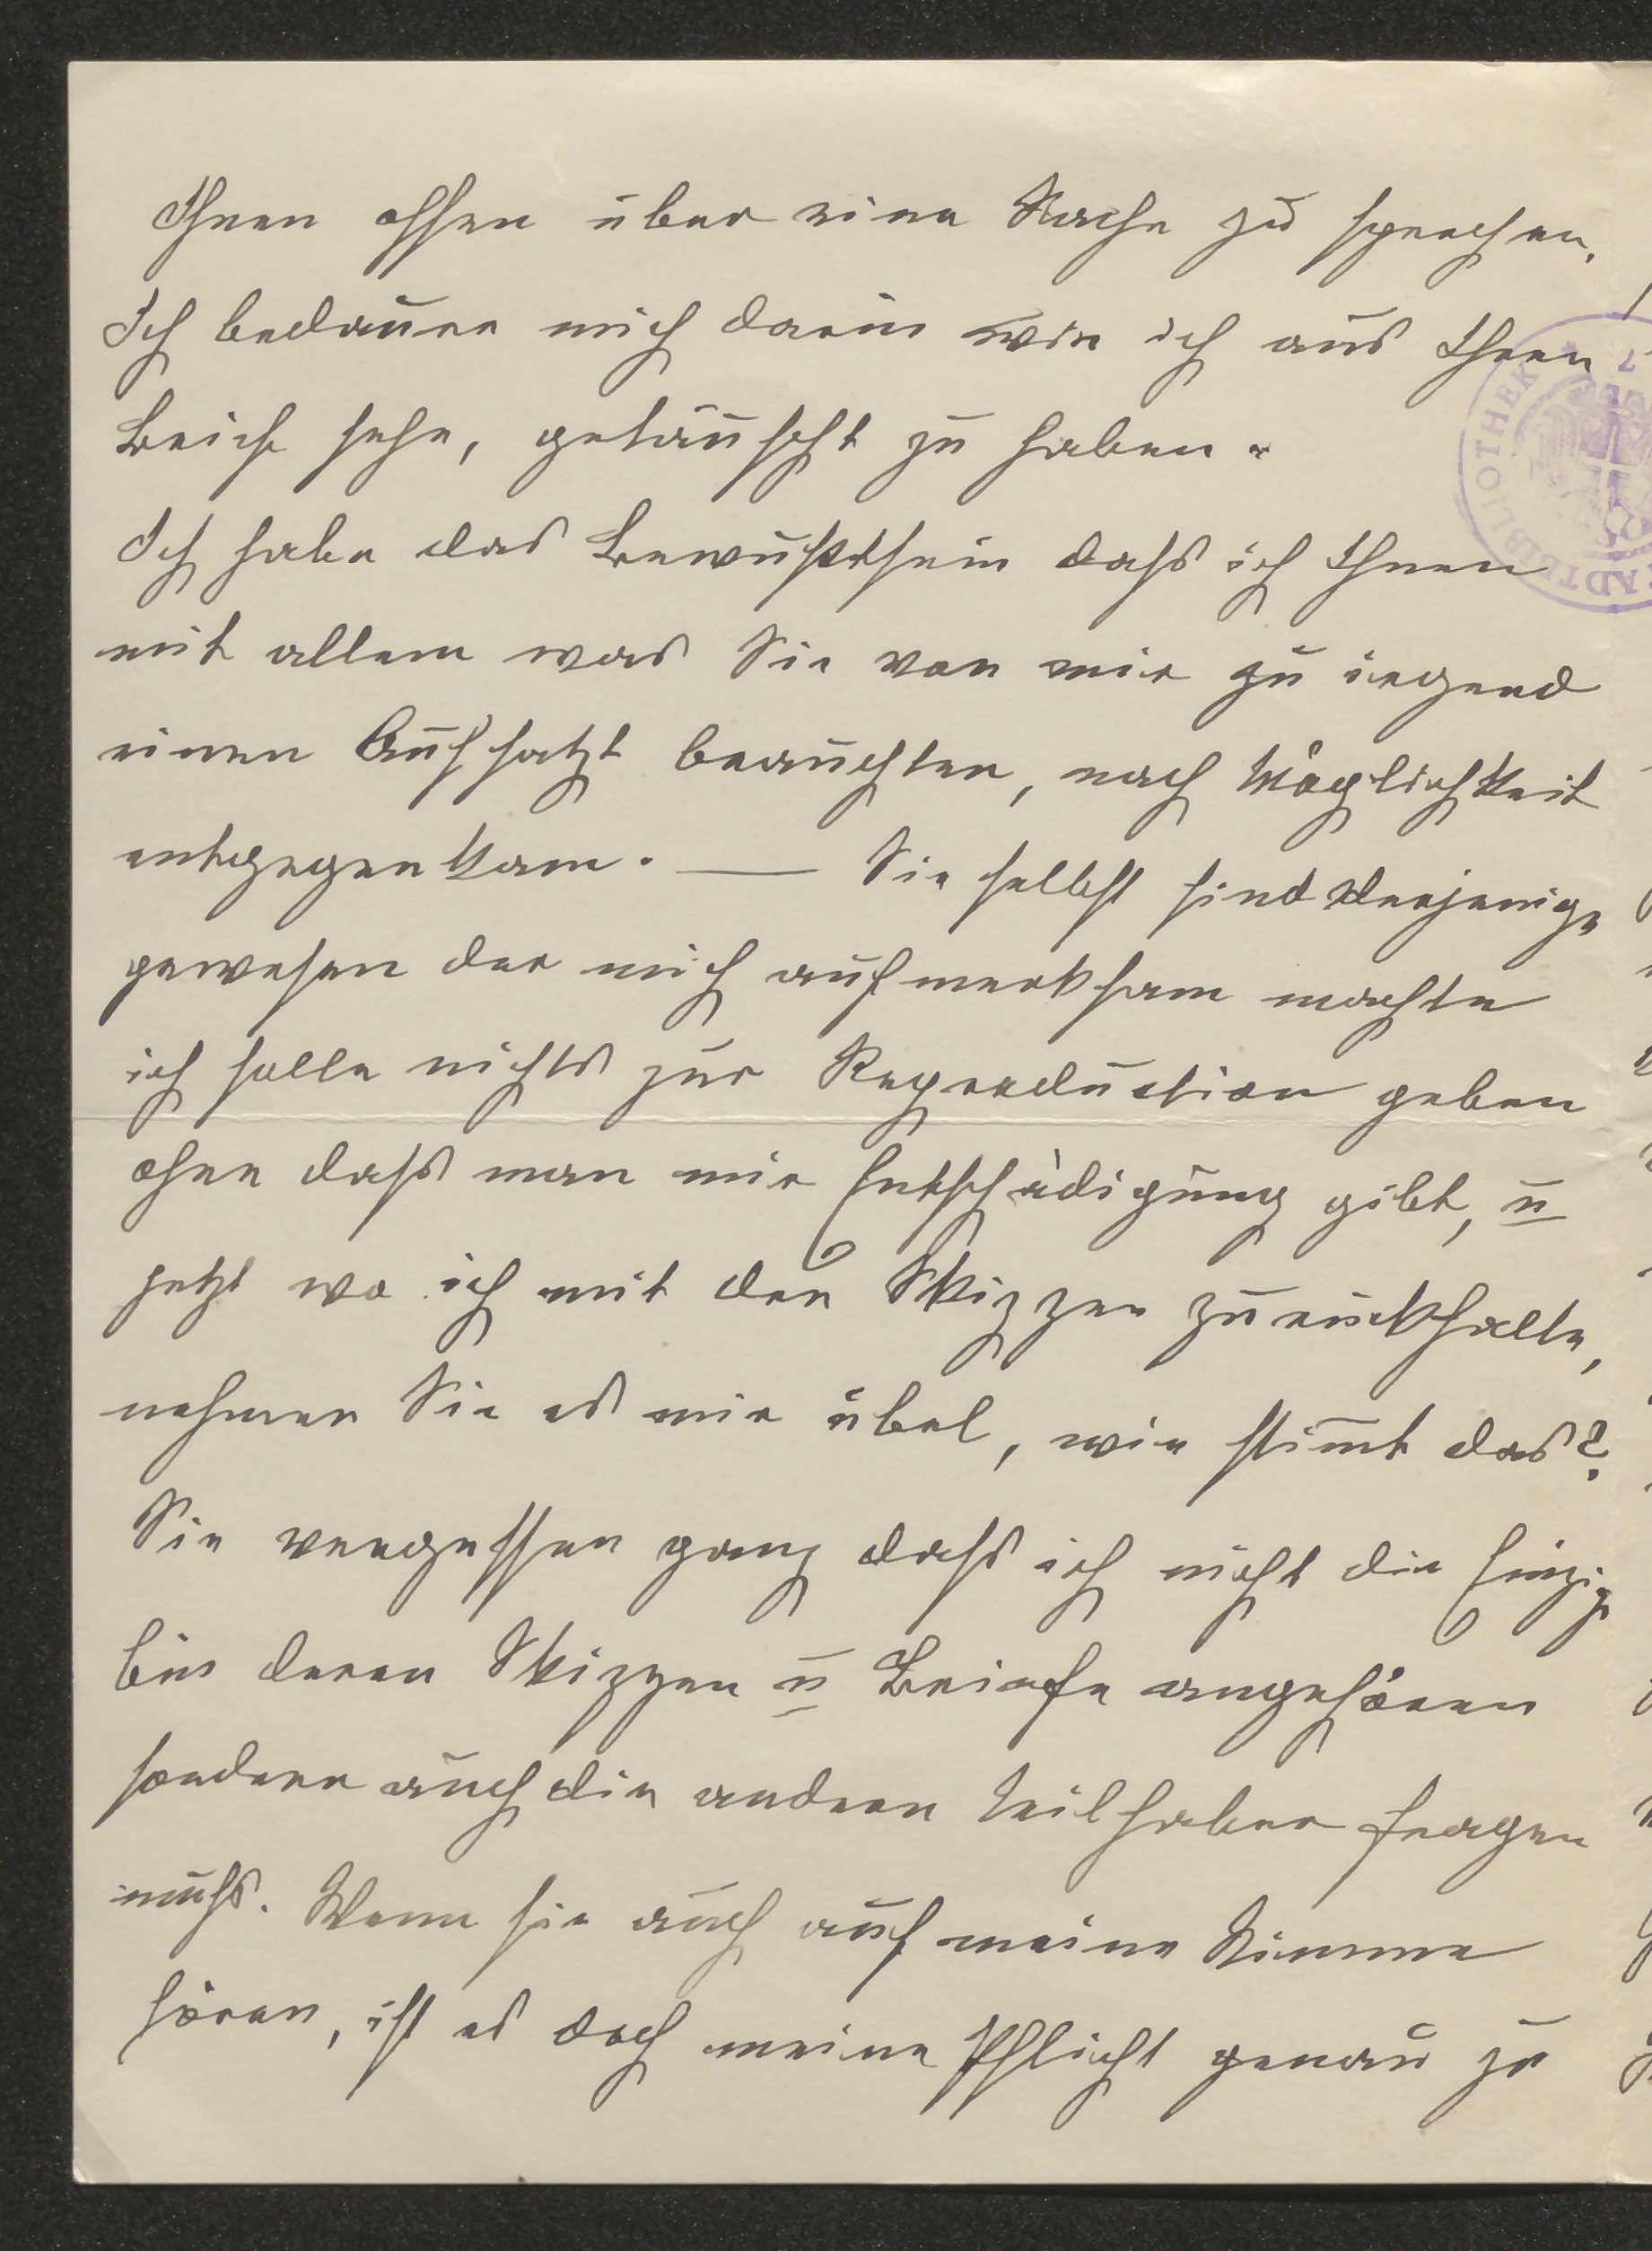 Ihnen offen über eine Sache zu sprechen.
Ich bedauere mich darin wie ich aus Ihren
Briefe sehe, getäuscht zu haben.
Ich habe das Bewußtsein dass ich Ihnen
mit allem was Sie von mir zu irgend
einen Aufsatzt brauchten, nach Möglichkeit
entgegenkam. — Sie selbst sind derjenige
gewesen der mich aufmerksam machte
ich solle nichts zur Reproduction geben
ohne dass man mir Entschädigung gibt, u
jetzt wo ich mit den Skizzen zurückhalte,
nehmen Sie es mir übel, wie stim̄t das?
Sie vergessen ganz dass ich nicht die Einzige
bin deren Skizzen u Briefe angehören
sondern auch die andern Teilhaber fragen
muss. Wenn sie auch auf meine Stimme
hören, ist es doch meine Pflicht genau zu